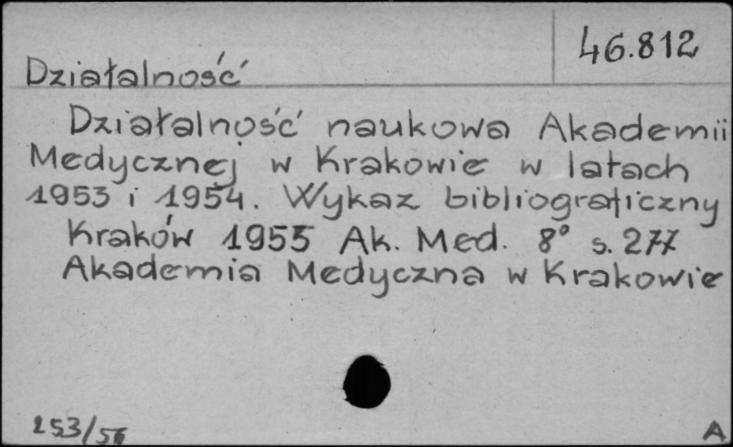 46.812
Działalność
Działalność naukowa Akademii
Medycznej w Krakowie w latach
1953 i 1954. Wykaz bibliograficzny
Kraków 1955 Ak. Med. 8° s. 277
Akademia Medyczna w Krakowie
253/56
A